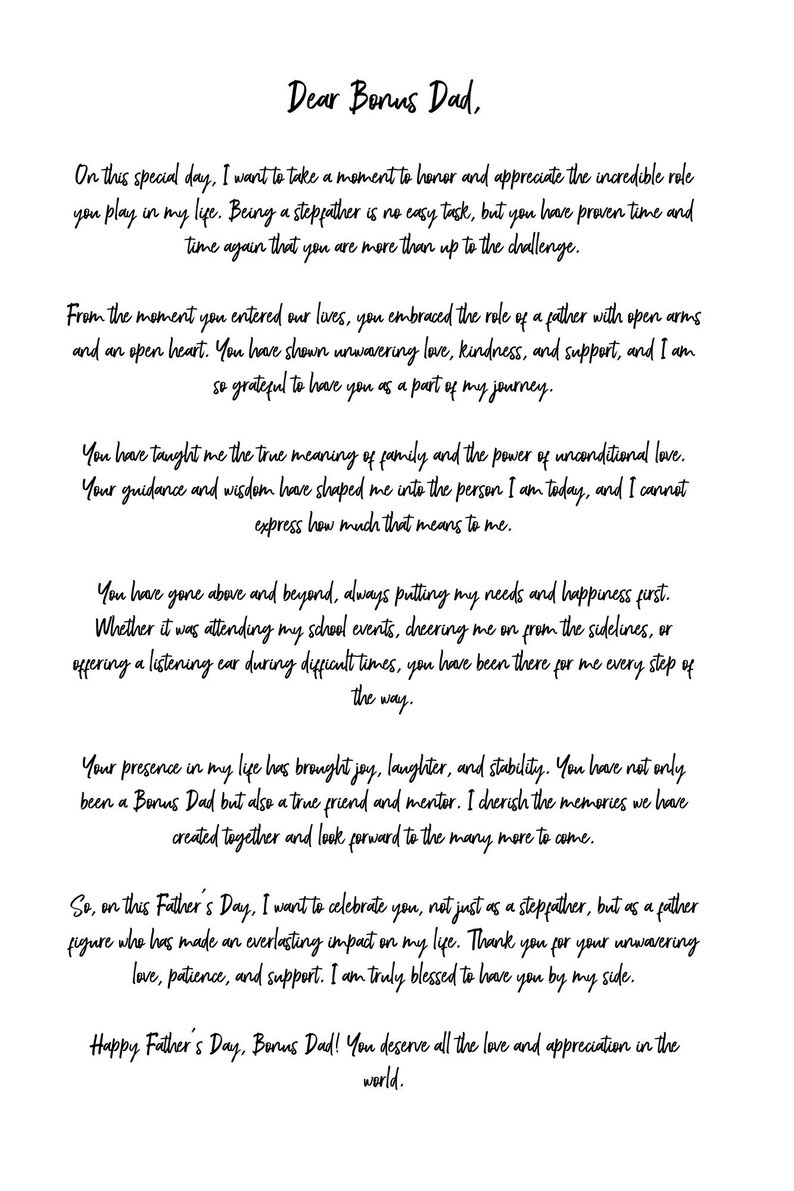 Dear Bonus Dad,
On this special day, I want to take a moment to honor and appreciate the incredible role
you play in my life. Being a stepfather is no easy task, but you have proven time and
time again that you are more than up to the challenge.
From the moment you entered our lives, you embraced the role of a father with open arms
and an open heart. You have shown unwavering love, kindness, and support, and I am
so grateful to have you as a part of my journey.
You have taught me the true meaning of family and the power of unconditional love.
Your guidance and wisdom have shaped me into the person I am today, and I cannot
express how much that means to me.
You have gone above and beyond, always putting my needs and happiness first.
Whether it was attending my school events, cheering me on from the sidelines, or
offering a listening ear during difficult times, you have been there for me every step of
the way.
Your presence in my life has brought joy, laughter, and stability. You have not only
been a Bonus Dad but also a true friend and mentor. I cherish the memories we have
created together and look forward to the many more to come.
So, on this Father's Day, I want to celebrate you, not just as a stepfather, but as a father
figure who has made an everlasting impact on my life. Thank you for your unwavering
love, patience, and support. I am truly blessed to have you by my side.
Happy Father's Day, Bonus Dad! You deserve all the love and appreciation in the
world.